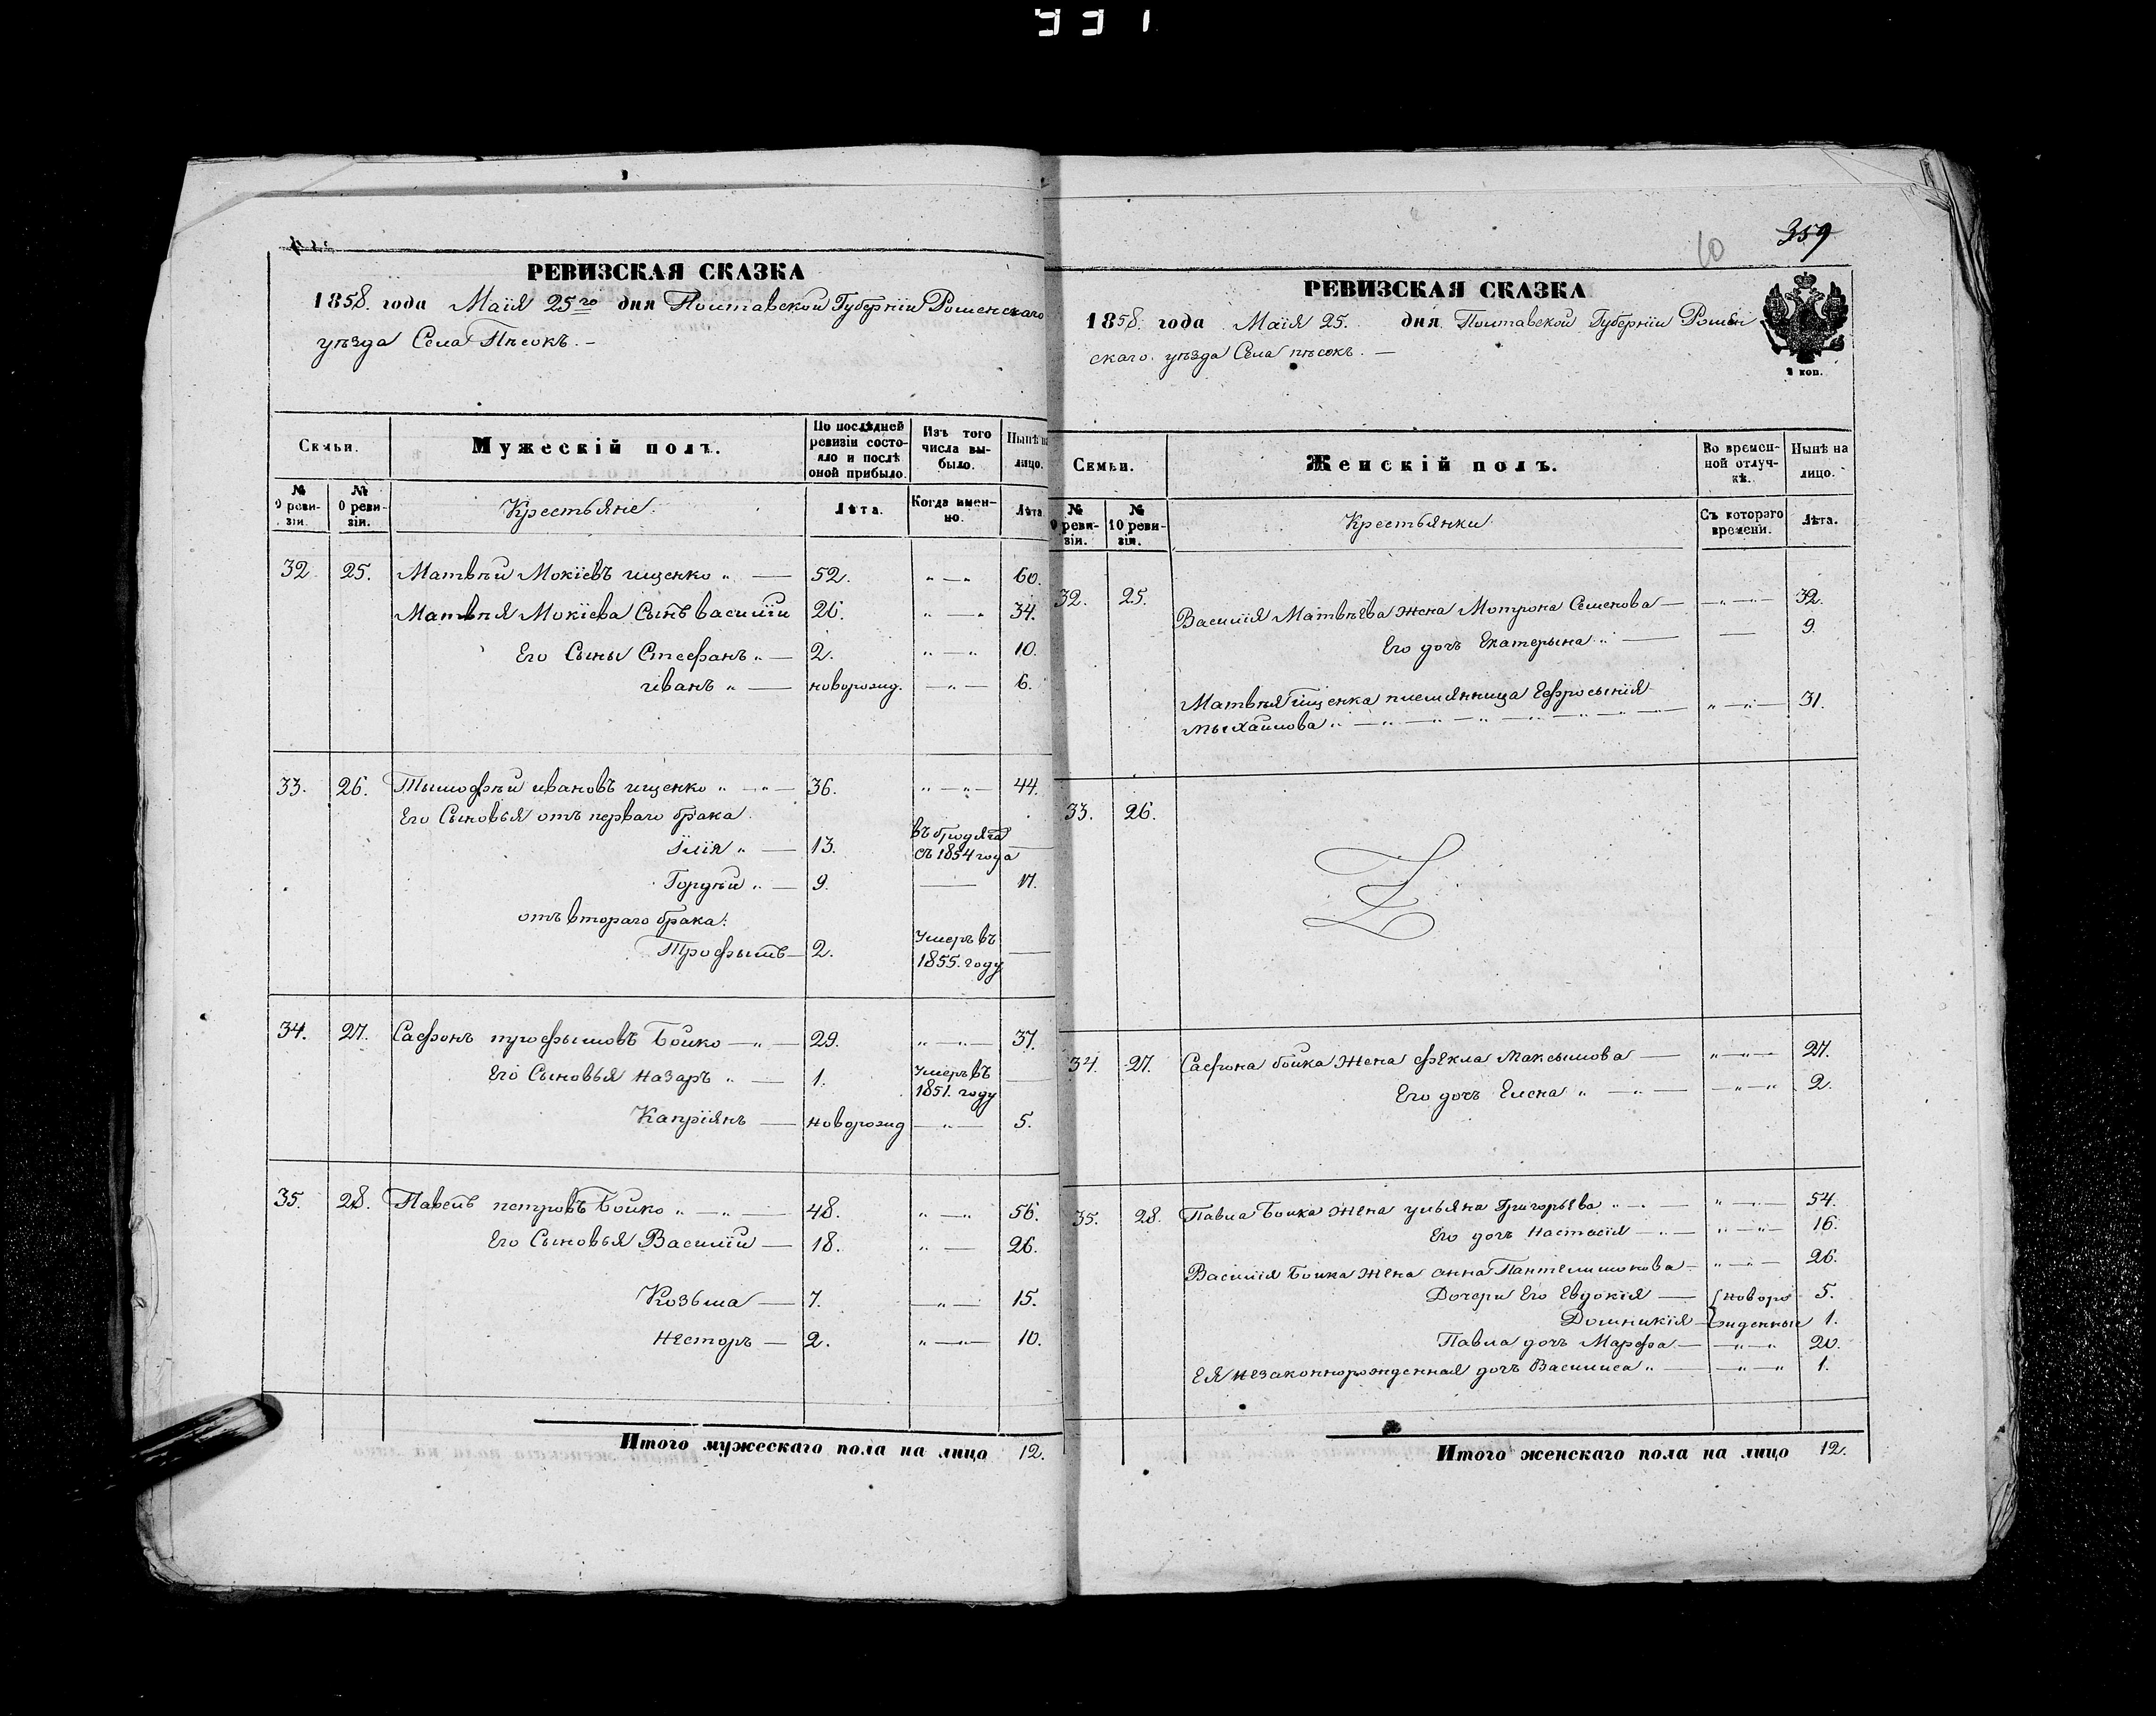 331
РЕВИЗСКАЯ СКАЗКА
1858. года Маія 25го дня Полтавской Губерніи Роменскаго
уѣзда Села Пѣсокъ. –
Семьи.
Мужескій полъ.
По послѣдней ревизіи состояло и послѣ оной прибыло.
Изъ того числа выбыло.
Нынѣ на лицо.
№ 9 ревизіи.
№ 0 ревизіи.
Крестьяне.
Лѣта.
Когда именно.
Лѣта
32 25. Матвѣй Мокіевъ ищенко „ — 52. „ — „ 60.
Матвѣя Мокіева Сынъ василій 26. „ — „ 34.
Его Сыны Стефанъ „ — 2. „ — „ 10.
иванъ „ — новорожд. — „ — 6.
33. 26. Тымофѣй ивановъ ищенко „ — „ — 36. „ — „ — 44.
Его Сыновья отъ перваго брака.
Ілія „ — 13. въ бродягах съ 1854 года —
Гордѣй „ — 9. — 17.
отъ втораго брака:
Трофымъ — 2. Умеръ въ 1855. году —
34. 27. Сафонъ трофымовъ Бойко — „ — 29. „ — „ — 37.
Его Сыновья назаръ „ — 1. Умеръ въ 1851. году —
Капріянъ — новорожд — „ — 5.
35. 28. Павелъ петровъ Бойко „ — „ — 48. „ — „ 56.
Его Сыновья Василій — 18. „ — 26.
Козьма — 7. — „ — 15.
несторъ — 2. „ — „ — 10.
Итого мужескаго пола на лицо 12.
10 359
РЕВИЗСКАЯ СКАЗКА
1858. года Маія 25. дня Полтавской Губерніи Ромен
скаго. уѣзда Села пѣсокъ. —
2 коп.
Семьи.
Женскій полъ.
Во временной отлучкѣ.
Нынѣ на лицо.
№ 9 ревизіи.
№ 10 ревизіи.
Крестьянки
Съ котораго времени.
Лѣта.
32. 25. Василія Матвѣева жена Мотрона Семенова — — „ — 32.
Его дочь Екатерына „ — — 9.
Матвѣя іщенка племянница Ефросынія
мыхаилова „ — „ — „ — „ — „ — „ — „ — „ — „ — 31.
33. 26.
34. 27. Сафона бойка жена фекла максымова — „ — „ — 27.
Его дочь Елена „ — „ — — „ — „ 2.
35. 28. Павла Бойка жена ульяна Григорьева „ — „ — „ — „ — 54.
Его дочь настасія — „ — „ — „ — 16.
Василія Бойка жена анна Пантелимонова — „ — „ — 26.
Дочери Его Евдокія — новоро 5.
Домникія — жденные 1.
Павла дочь Марфа — — „ — „ 20.
Ея незаконнорожденная дочь Василиса „ — — „ — „ 1.
Итого женскаго пола на лицо 12.